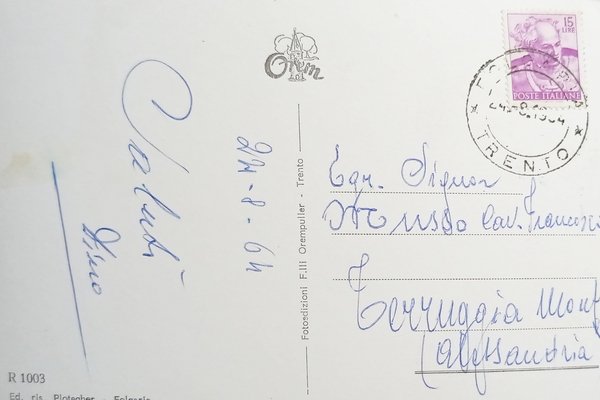 Saluti
Dino
24-8-64
R 1003
Ed. ris Plotegher - Folgaria
Orem
Fotoedizioni F.lli Orempuller - Trento
15
LIRE
POSTE ITALIANE
24.8.1964
TRENTO
Egr. Signor
Musso Cav. Francesco
Terruggia Monf
(Alessandria